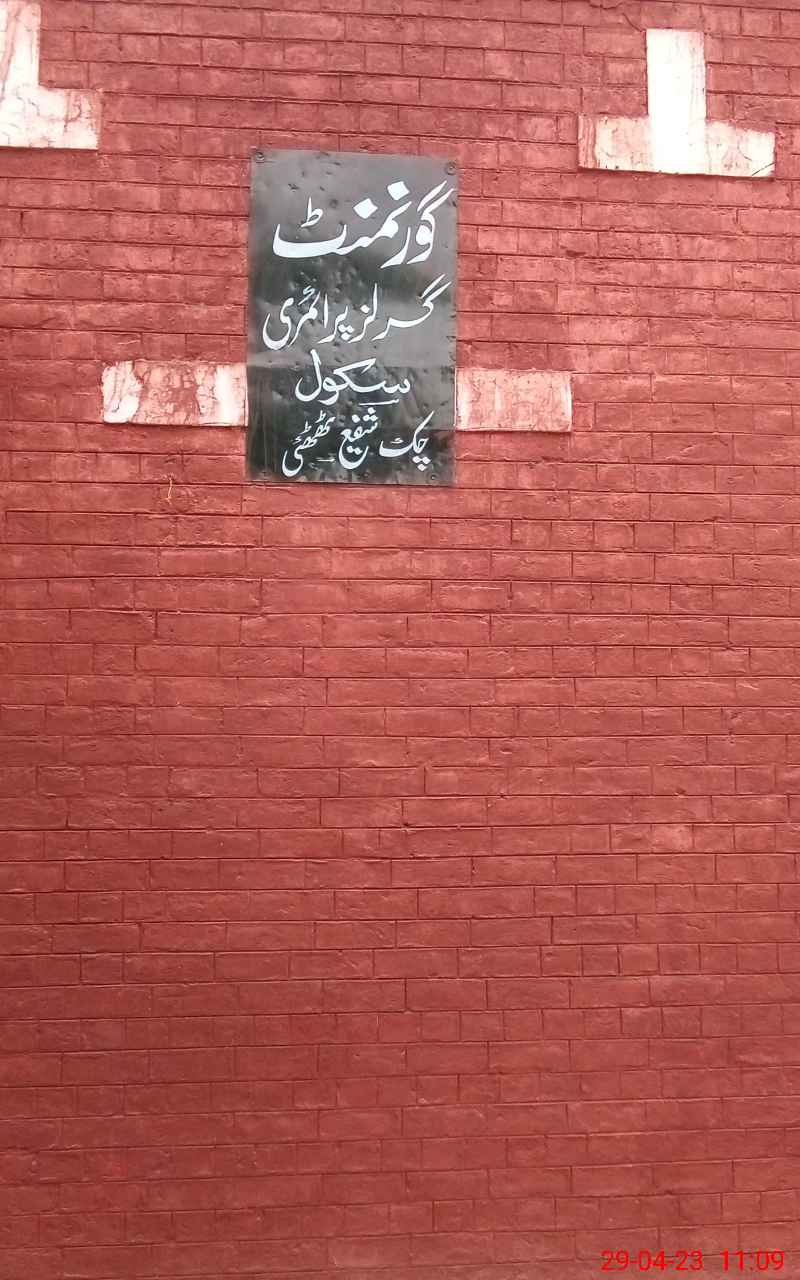 گورنمنٹ
گرلز پرائمری
سکول
چک شفیع ٹھٹھی
29-04-23 11:09